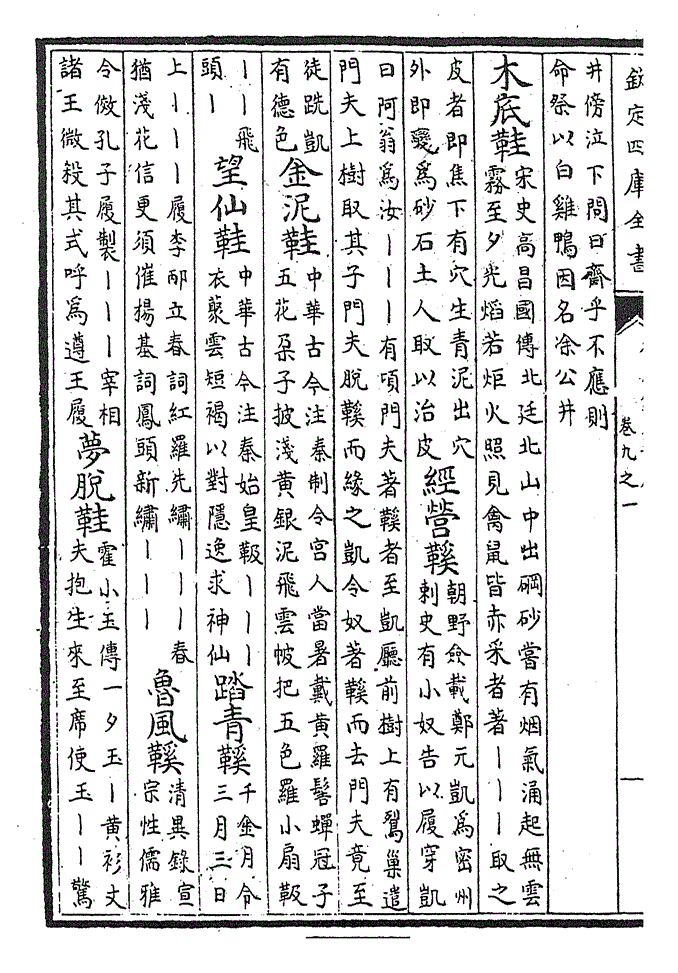 欽定四庫全書
卷九之一
井傍泣下問曰齋乎不應則
命祭以白雞鴨因名涂公井
木底鞋
宋史高昌國傳北廷北山中出碙砂嘗有烟氣涌起無雲
霧至夕光熖若炬火照見禽鼠皆赤采者著丨丨丨取之
皮者即焦下有穴生青泥出穴
外即變為砂石土人取以治皮
經營鞵
朝野僉載鄭元凱為密州
刺史有小奴告以履穿凱
曰阿翁為汝丨丨丨有頃門夫著鞵者至凱廳前樹上有鴷巢遣
門夫上樹取其子門夫脫鞵而緣之凱令奴著鞵而去門夫竟至
徒跣凱
有德色
金泥鞋
中華古今注秦制令宫人當暑戴黄羅髻蟬冠子
五花朶子披淺黄銀泥飛雲帔把五色羅小扇靸
丨丨飛
頭丨
望仙鞋
中華古今注秦始皇靸丨丨丨
衣藂雲短褐以對隱逸求神仙
踏青鞵
千金月令
三月三日
上丨丨丨履李邴立春詞紅羅先繡丨丨丨春
猶淺花信更須催揚基詞鳳頭新繡丨丨丨
魯風鞵
清異錄宣
宗性儒雅
令傚孔子履製丨丨丨宰相
諸王微殺其式呼為遵王履
夢脫鞋
霍小玉傳一夕玉丨黄衫丈
夫抱生來至席使玉丨丨驚